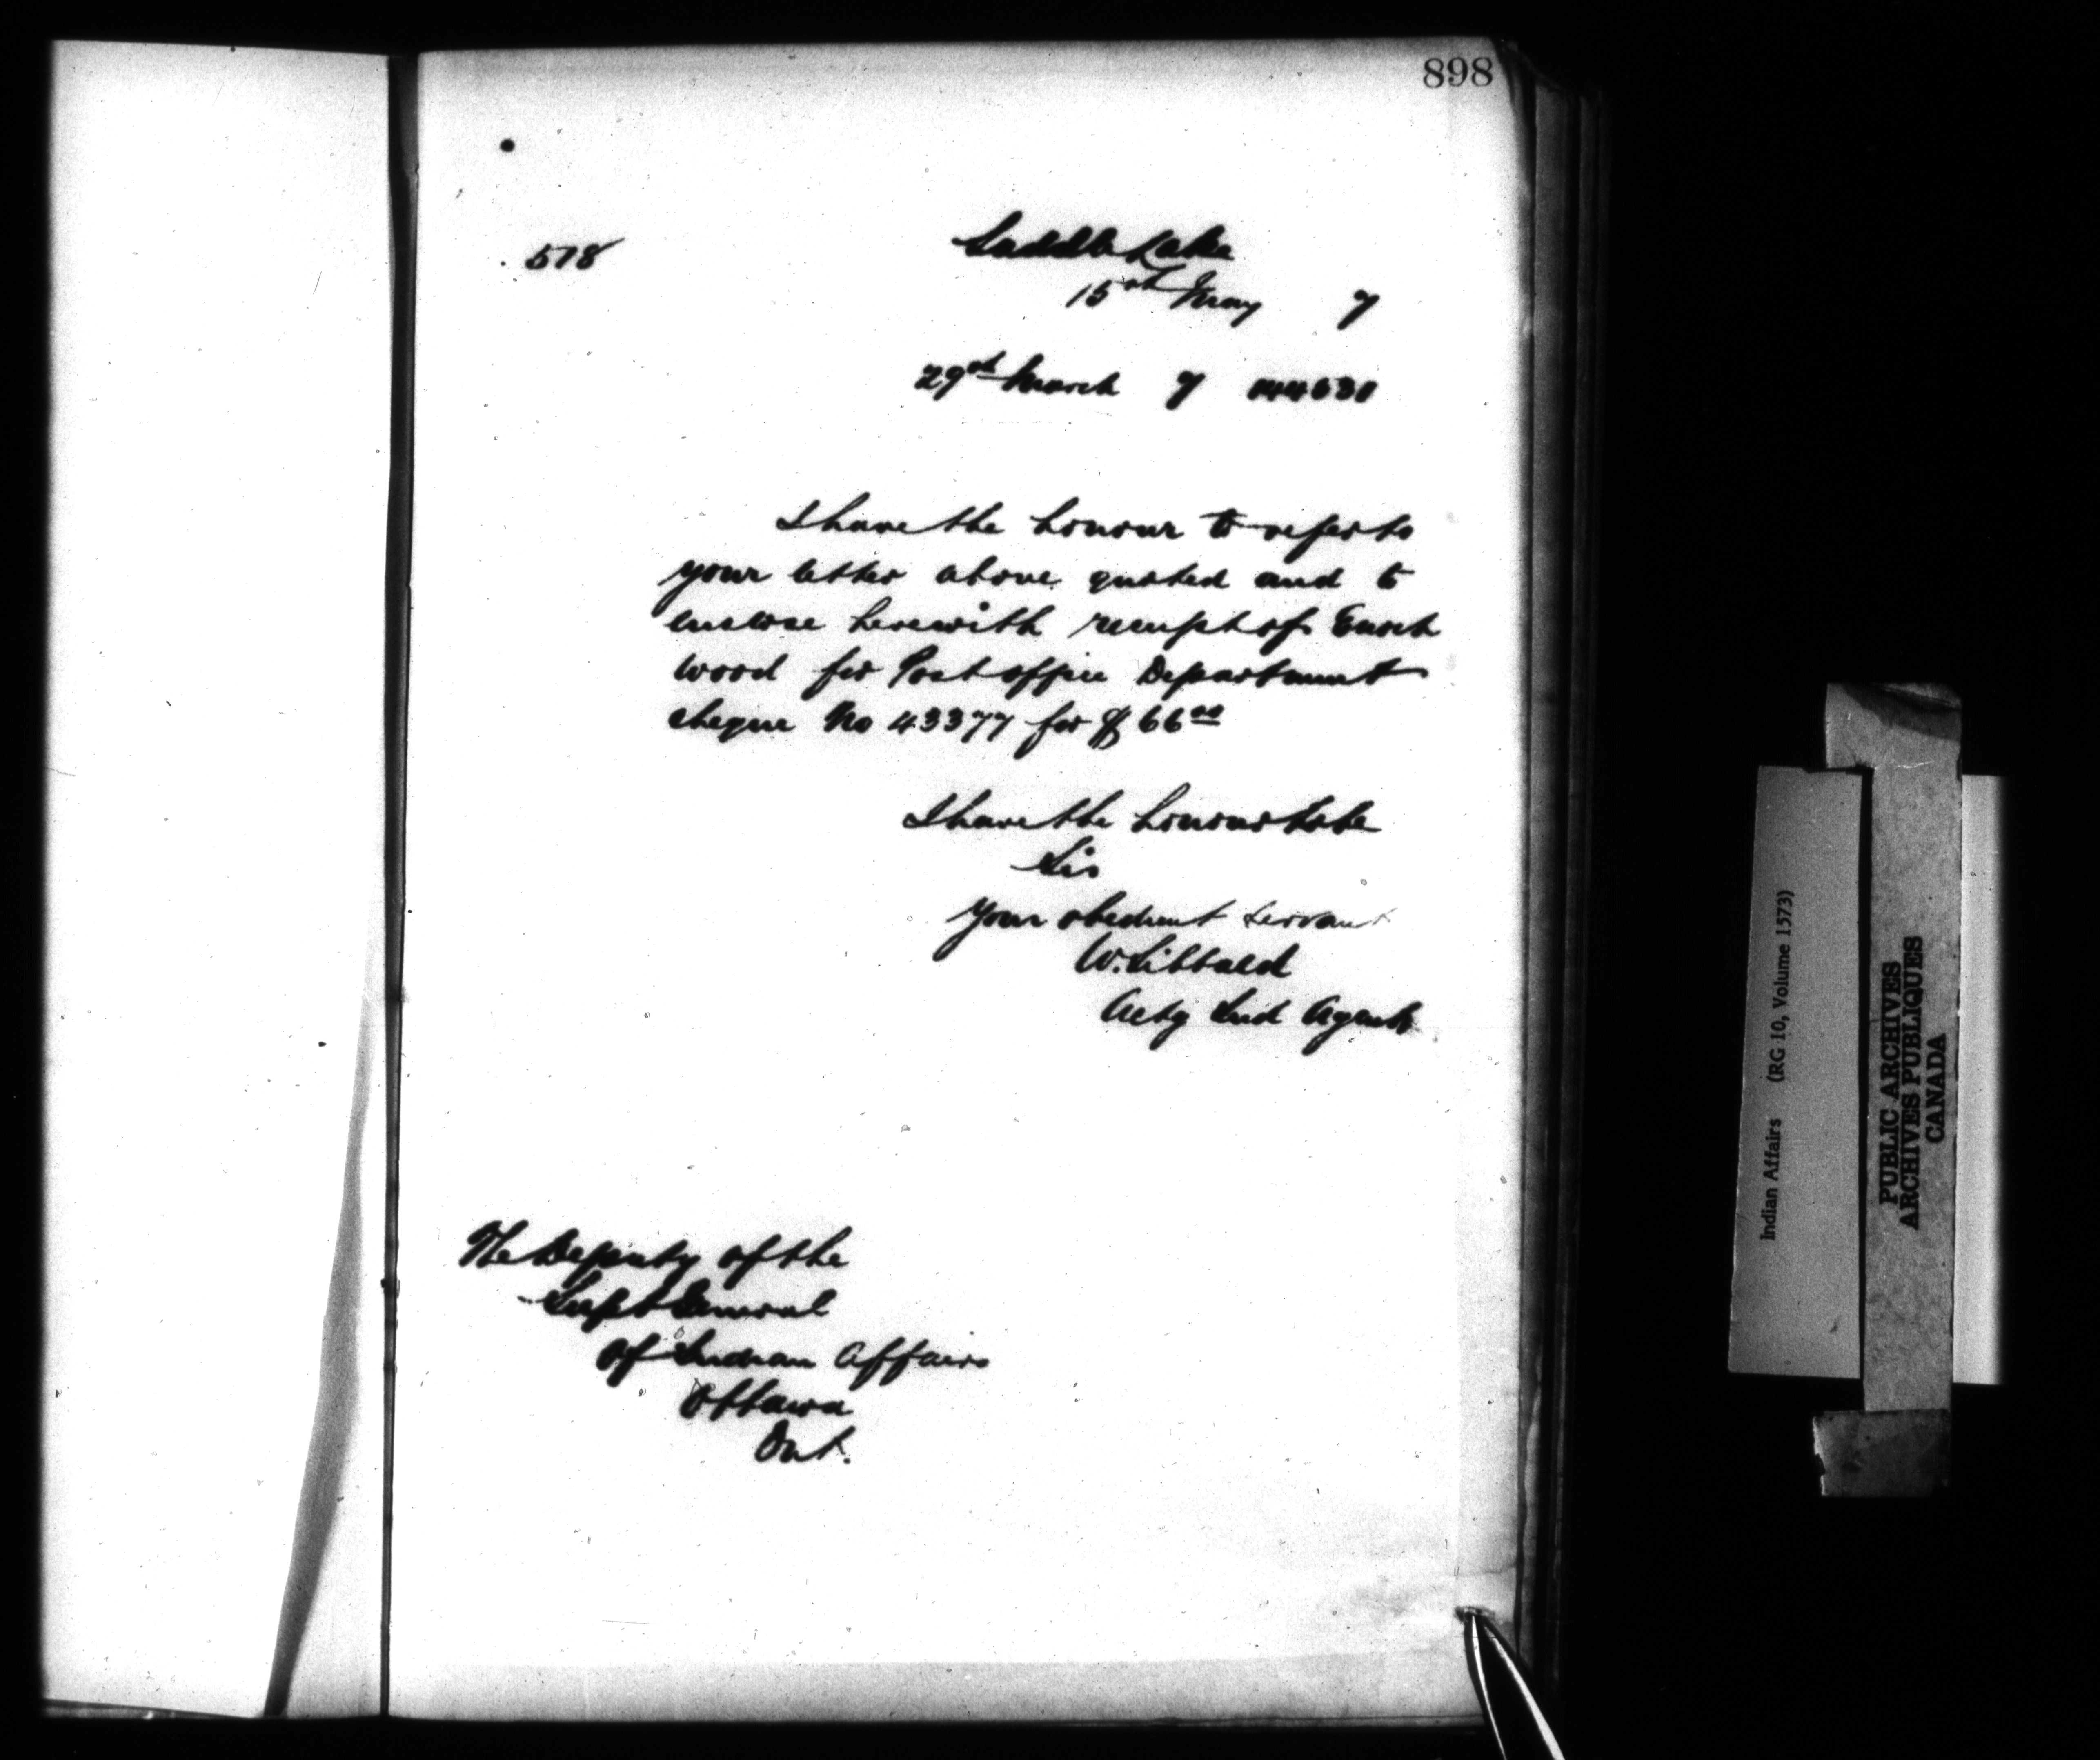 898
578
Saddle Lake
15th May 7
29th March 7 144631
I have the honour to refer to
your letter above quoted and to
enclose herewith receipt of Enoch
Wood for Post office Department
cheque No 43377 for $66.00
I have the honour to be
Sir
Your obedient servant
W. Sibbald
Actg Ind Agent
The Deputy of the
Supt General
of Indian Affairs
Ottawa
Ont.
Indian Affairs (RG 10, Volume 1573)
PUBLIC ARCHIVES
ARCHIVES PUBLIQUES
CANADA